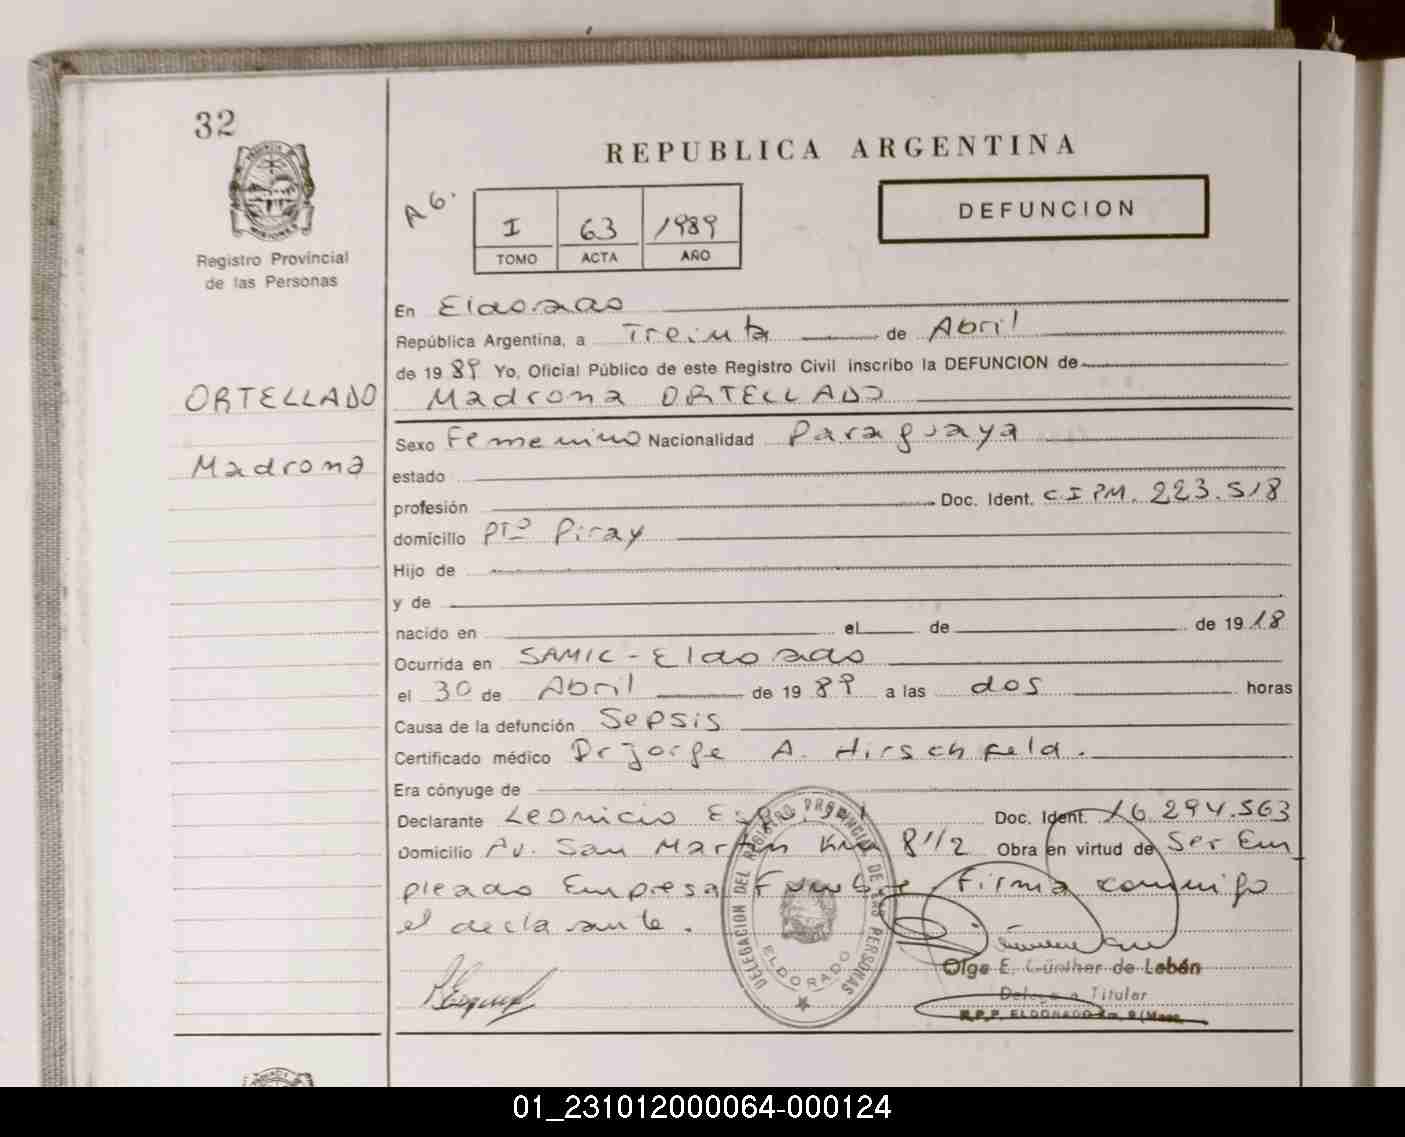 32
REPUBLICA ARGENTINA
A 6.
I 63 1989
TOMO ACTA AÑO
DEFUNCION
Registro Provincial
de las Personas
En Eldorado
República Argentina, a Treinta de Abril
de 1989 Yo, Oficial Público de este Registro Civil inscribo la DEFUNCION de
ORTELLADO
Madrona ORTELLADO
Sexo Femenino Nacionalidad Paraguaya
Madrona
estado
profesión Doc. Ident. C.I PM. 223.518
domicilio Pto Piray
Hijo de
y de
nacido en el de de 1918
Ocurrida en SAMIC - Eldorado
el 30 de Abril de 1989 a las dos horas
Causa de la defunción Sepsis
Certificado médico Dr Jorge A. Hirschfeld.
Era cónyuge de
Declarante Leonicio Doc. Ident. 16.294.563
Domicilio Av. San Martin Km 8 1/2 Obra en virtud de Ser Em
pleado Empresa Funebre. Firma conmigo
el declarante.
DELEGACION DEL REGISTRO PROVINCIAL DE LAS PERSONAS
ELDORADO
Olga E. Günther de Lebán
Delegada Titular
R.P.P. ELDORADO Km. 9 (Mnes.
01_231012000064-000124